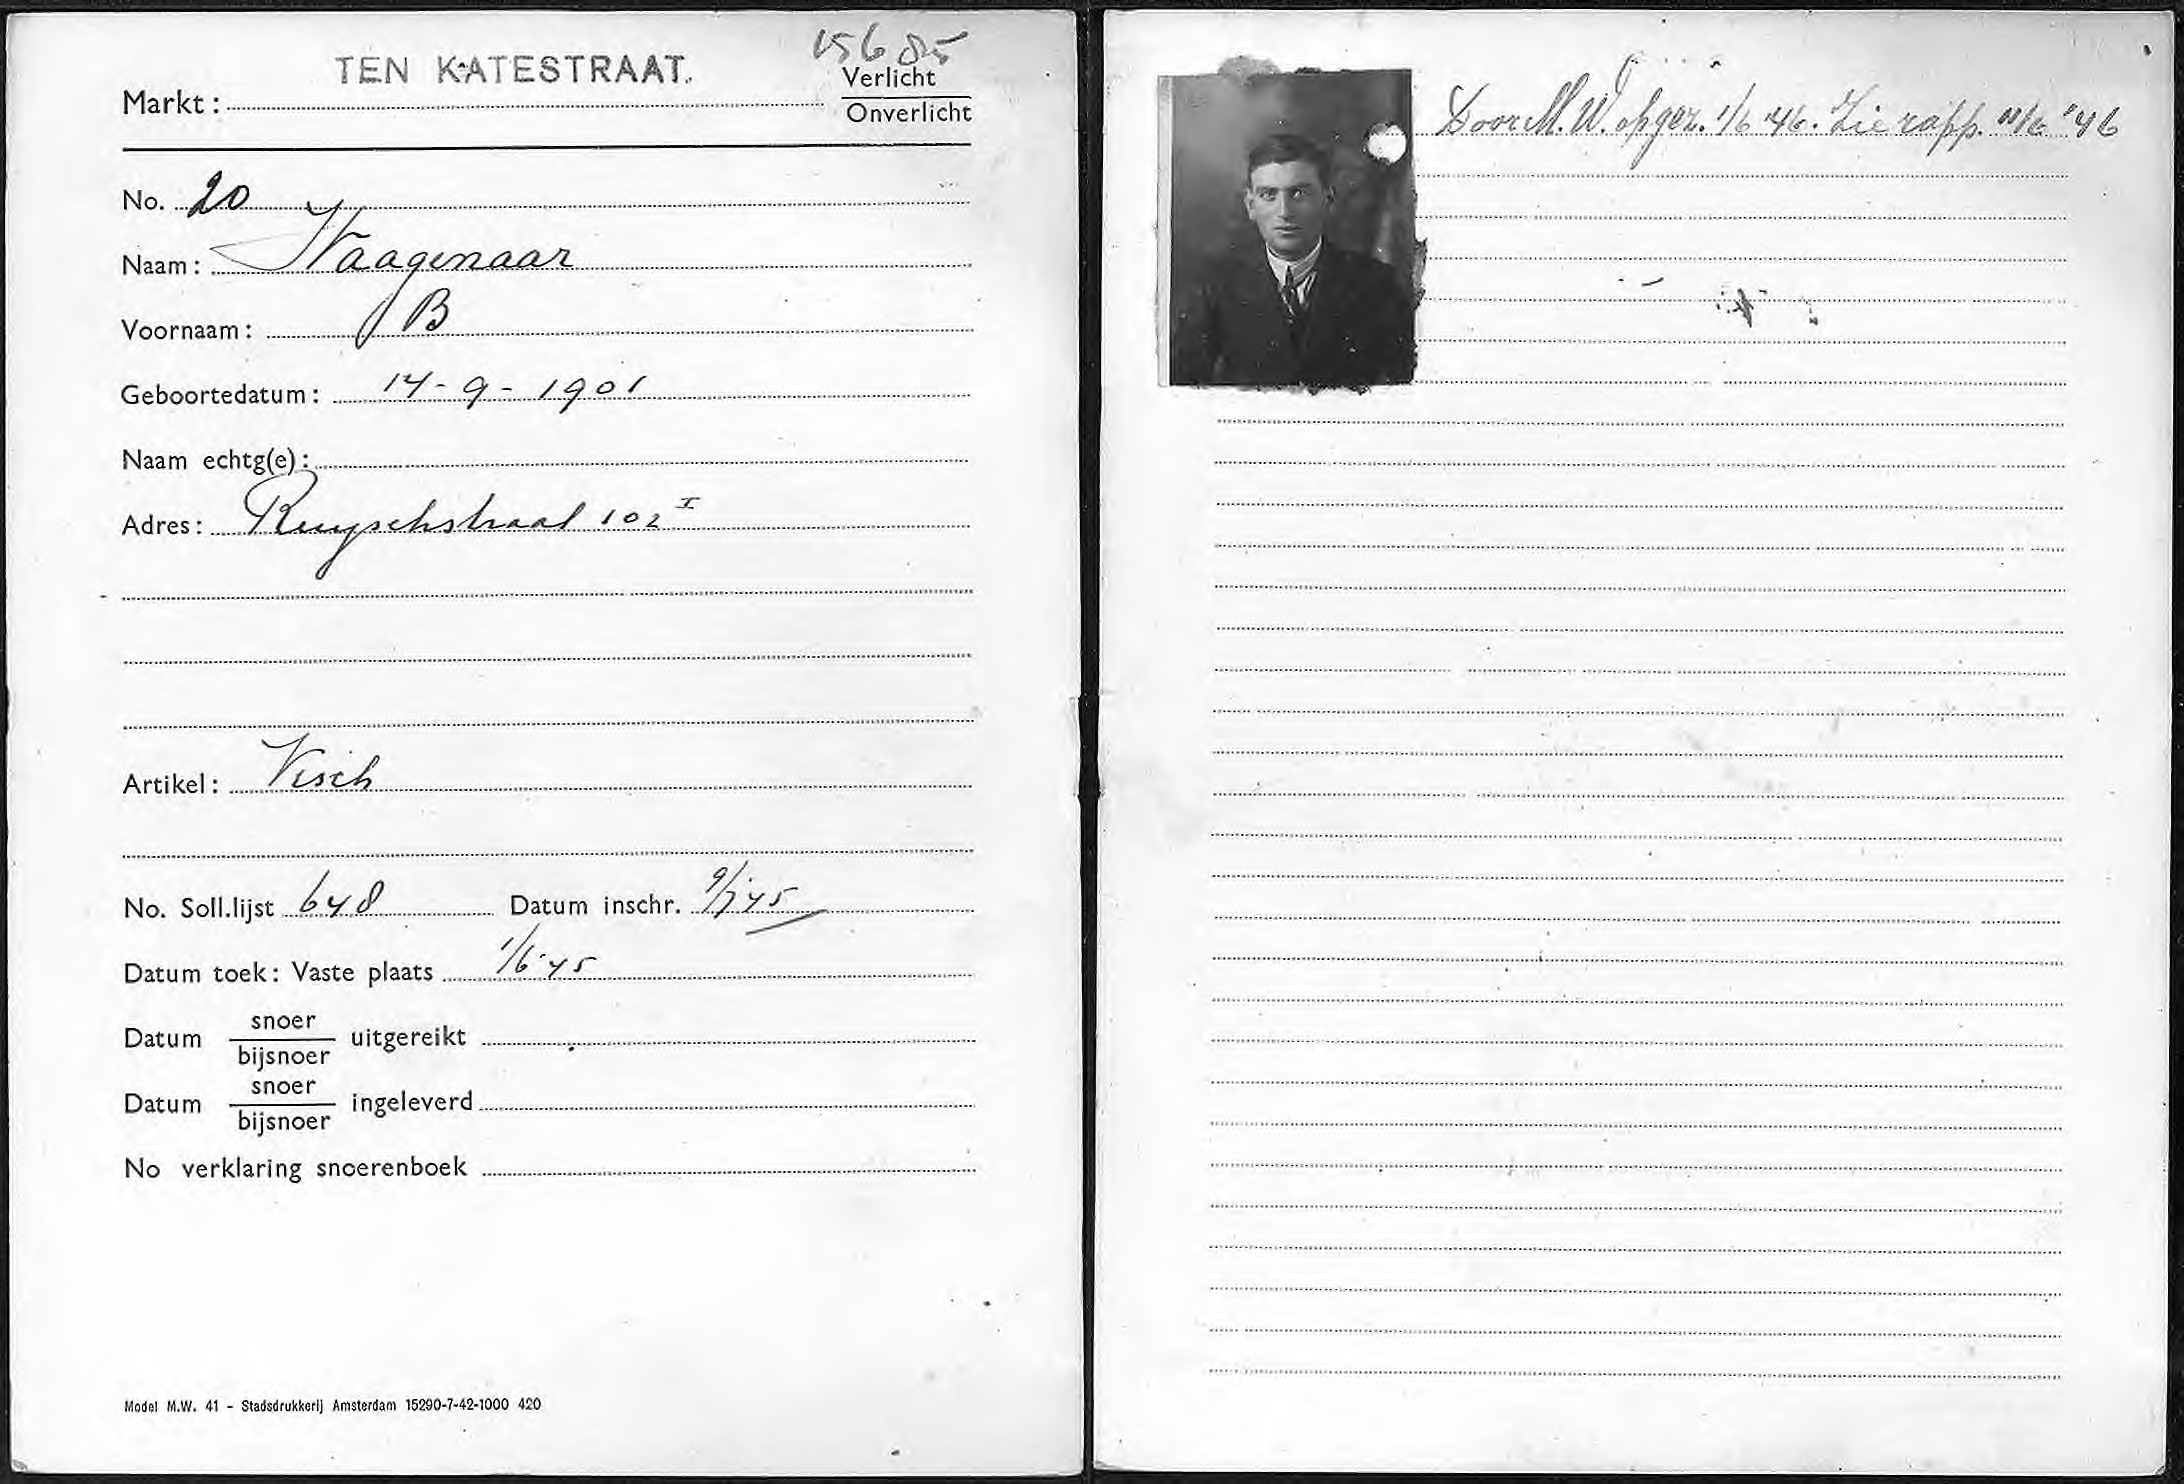 15685
TEN KATESTRAAT.
Markt :
Verlicht
Onverlicht
No. 20
Naam : Waagenaar
Voornaam : B
Geboortedatum : 14-9-1901
Naam echtg(e) :
Adres : Ruyschstraat 102 I
Artikel : Visch
No. Soll.lijst 648 Datum inschr. 9/7 45
Datum toek : Vaste plaats 1/6 '45
Datum snoer/bijsnoer uitgereikt
Datum snoer/bijsnoer ingeleverd
No verklaring snoerenboek
Model M.W. 41 - Stadsdrukkerij Amsterdam 15290-7-42-1000 420
Door M.W. opgez. 1/6 '46. Zie rapp. 11/6 '46